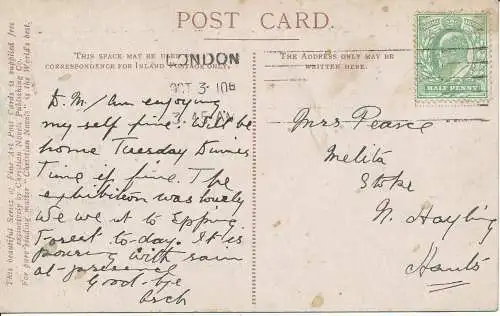 POST CARD.
THIS SPACE MAY BE USED FOR
CORRESPONDENCE FOR INLAND POSTAGE ONLY.
THE ADDRESS ONLY MAY BE
WRITTEN HERE.
LONDON
OCT 3 · 10 6
3.15
HALF PENNY
D. M/ Am enjoying
my self fine. Will be
home Tuesday
time if fine. The
exhibition was lovely
We we it to Epping
Forest to-day. It is
pouring with rain
at-present
Good-bye
Mrs Pearce
Melita
Stoke
N. Hayling
Hants
This beautiful Series of Fine Art Post Cards is supplied free
exclusively by Christian Novels Publishing Co.
For pure reading matter "Christian Novels" is the World's best.